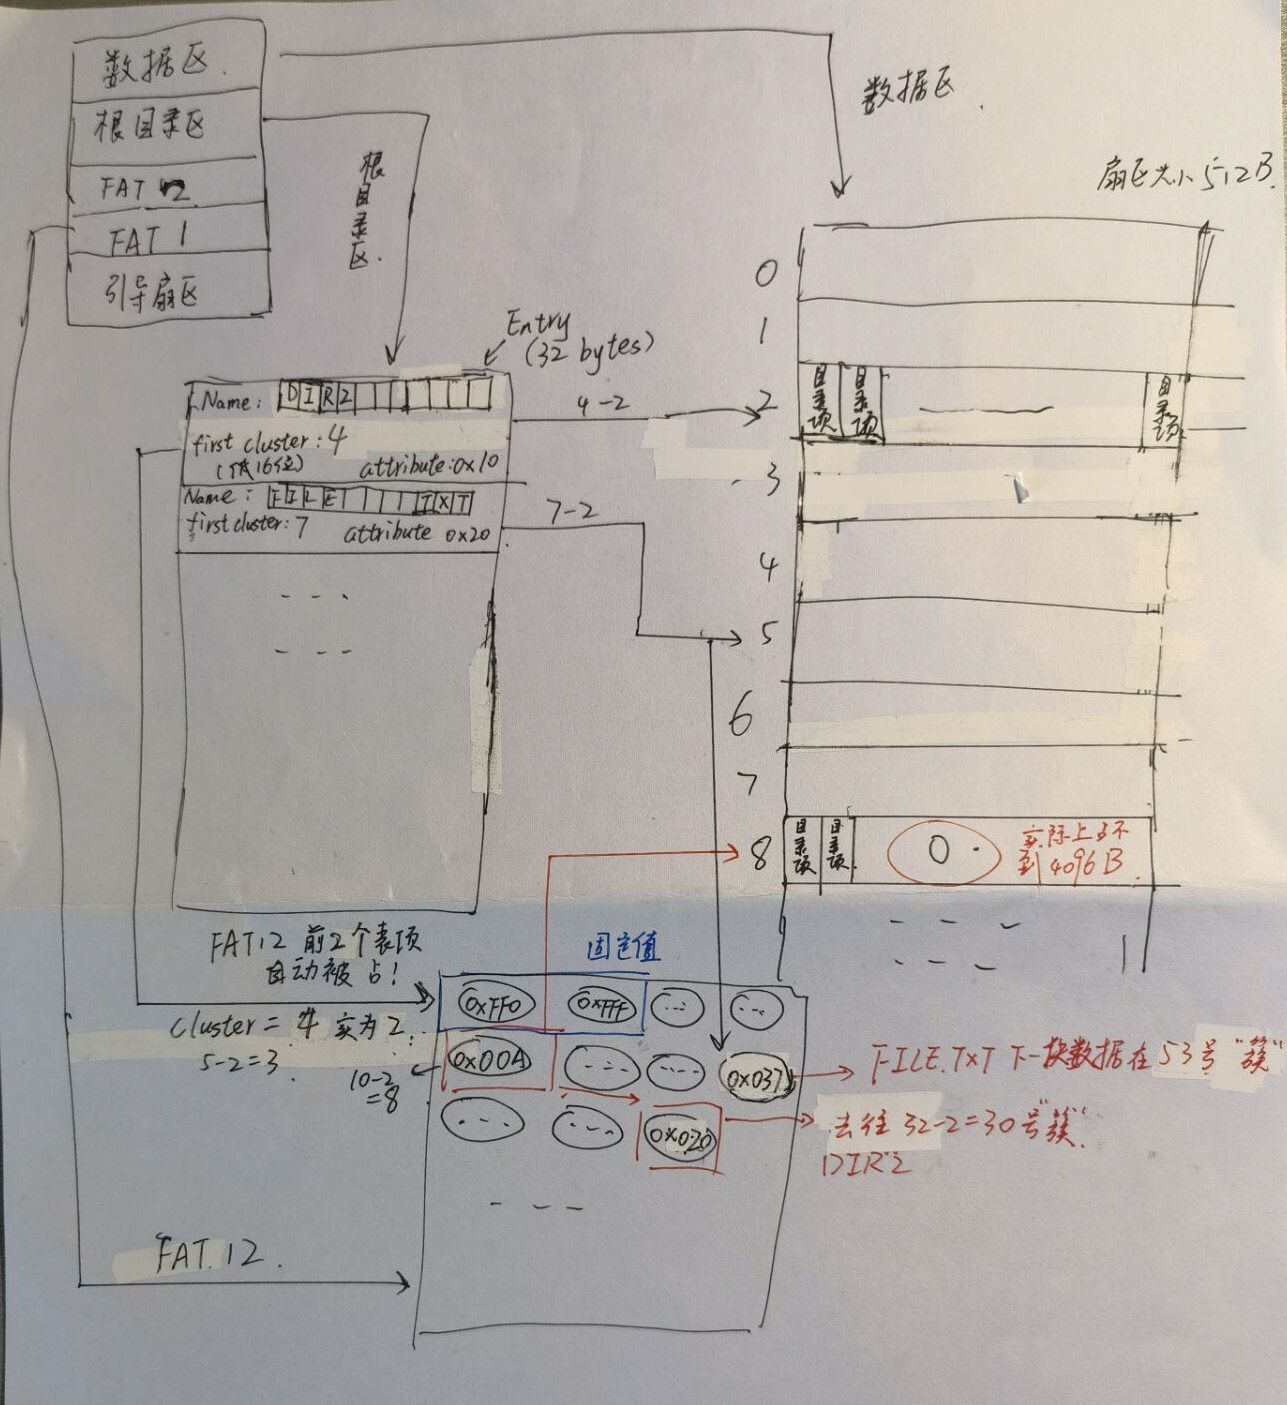 数据区.
根目录区
FAT 2
FAT 1
引导扇区
根目录区.
数据区.
扇区大小 512B.
Entry
(32 bytes)
Name: DIR2
first cluster: 4
(低16位) attribute: 0x10
Name: FILE TXT
first cluster: 7 attribute 0x20
4-2
7-2
0
1
2 目录项 目录项 目录项
3
4
5
6
7
8 目录项 目录项 0. 实际上多不
到4096B.
FAT12 前2个表项
自动被占!
固定值
0xFF0 0xFFF
cluster = 4 实为2.
5-2=3.
10-2
=8
0x00A 0x037
FILE.TXT 下一块数据在53号"簇"
0x020
去往32-2=30号"簇".
DIR2
FAT 12.